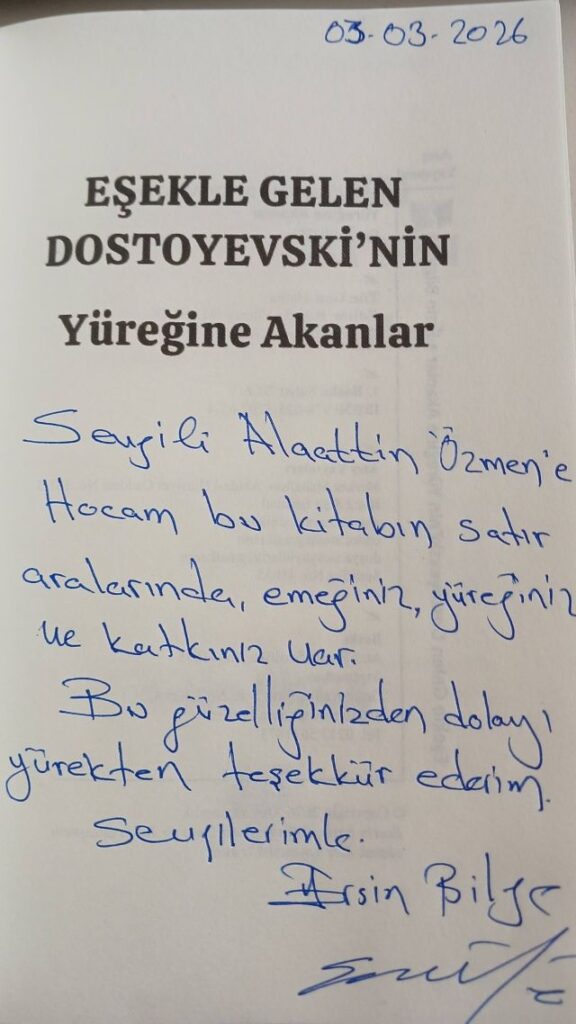 03.03.2026
EŞEKLE GELEN
DOSTOYEVSKİ’NİN
Yüreğine Akanlar
Sevgili Alaattin Özmen'e
Hocam bu kitabın satır
aralarında, emeğiniz, yüreğiniz
ve katkınız var.
Bu güzelliğinizden dolayı
yürekten teşekkür ederim.
Sevgilerimle.
Ersin Bilge